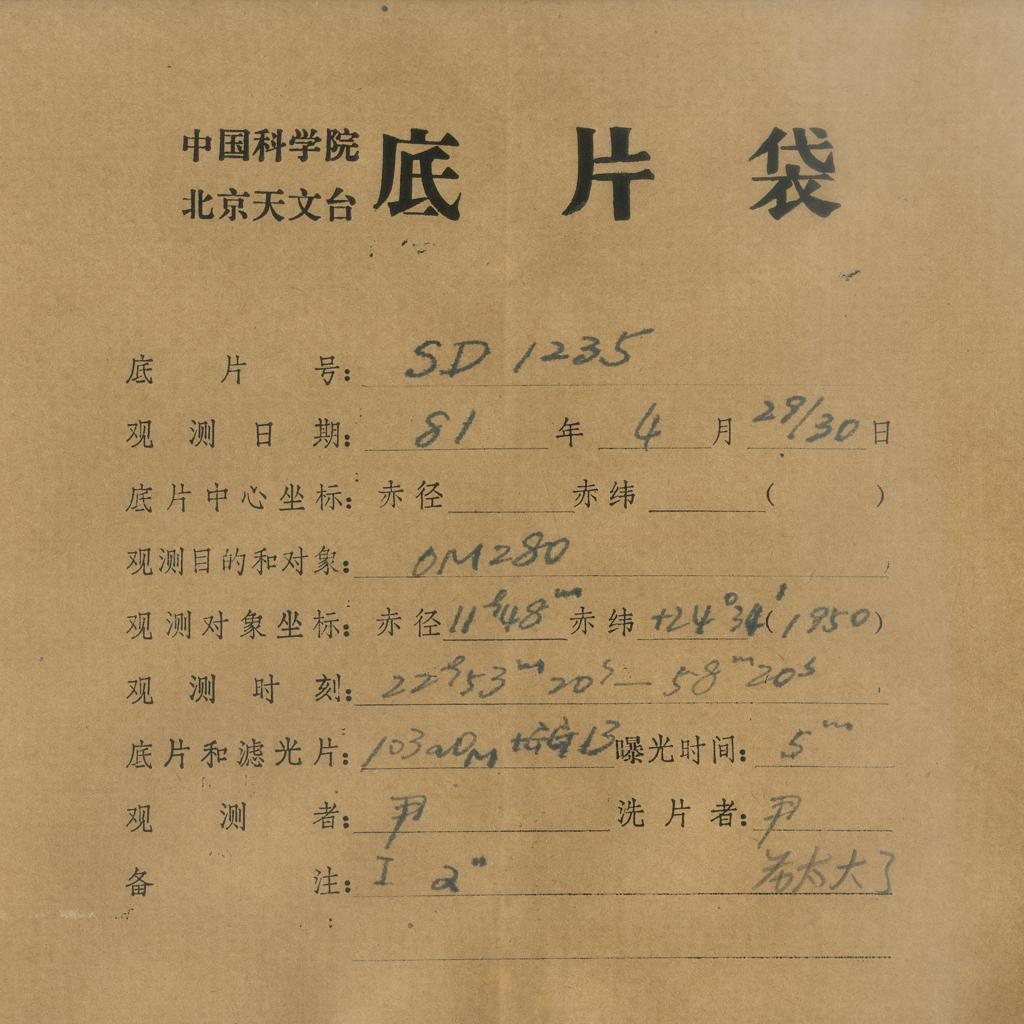 中国科学院
北京天文台
底片袋
底片号: SD 1235
观测日期: 81年4月29/30日
底片中心坐标: 赤径 赤纬 ( )
观测目的和对象: OM280
观测对象坐标: 赤径 11h48m 赤纬 +24°34′(1950)
观测时刻: 22h53m20s — 58m20s
底片和滤光片: 103aO 13 曝光时间: 5m
观测者: 尹 洗片者: 尹
备注: I 2" 太大了